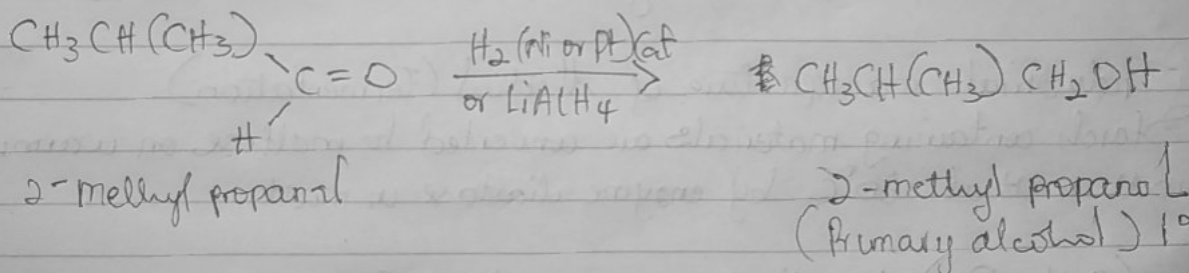 CH3CH(CH3)
C=O
H
H2 (Ni or Pt) Cat
or LiAlH4
CH3CH(CH3) CH2OH
2-methyl propanal
2-methyl propanol
(Primary alcohol) 1°